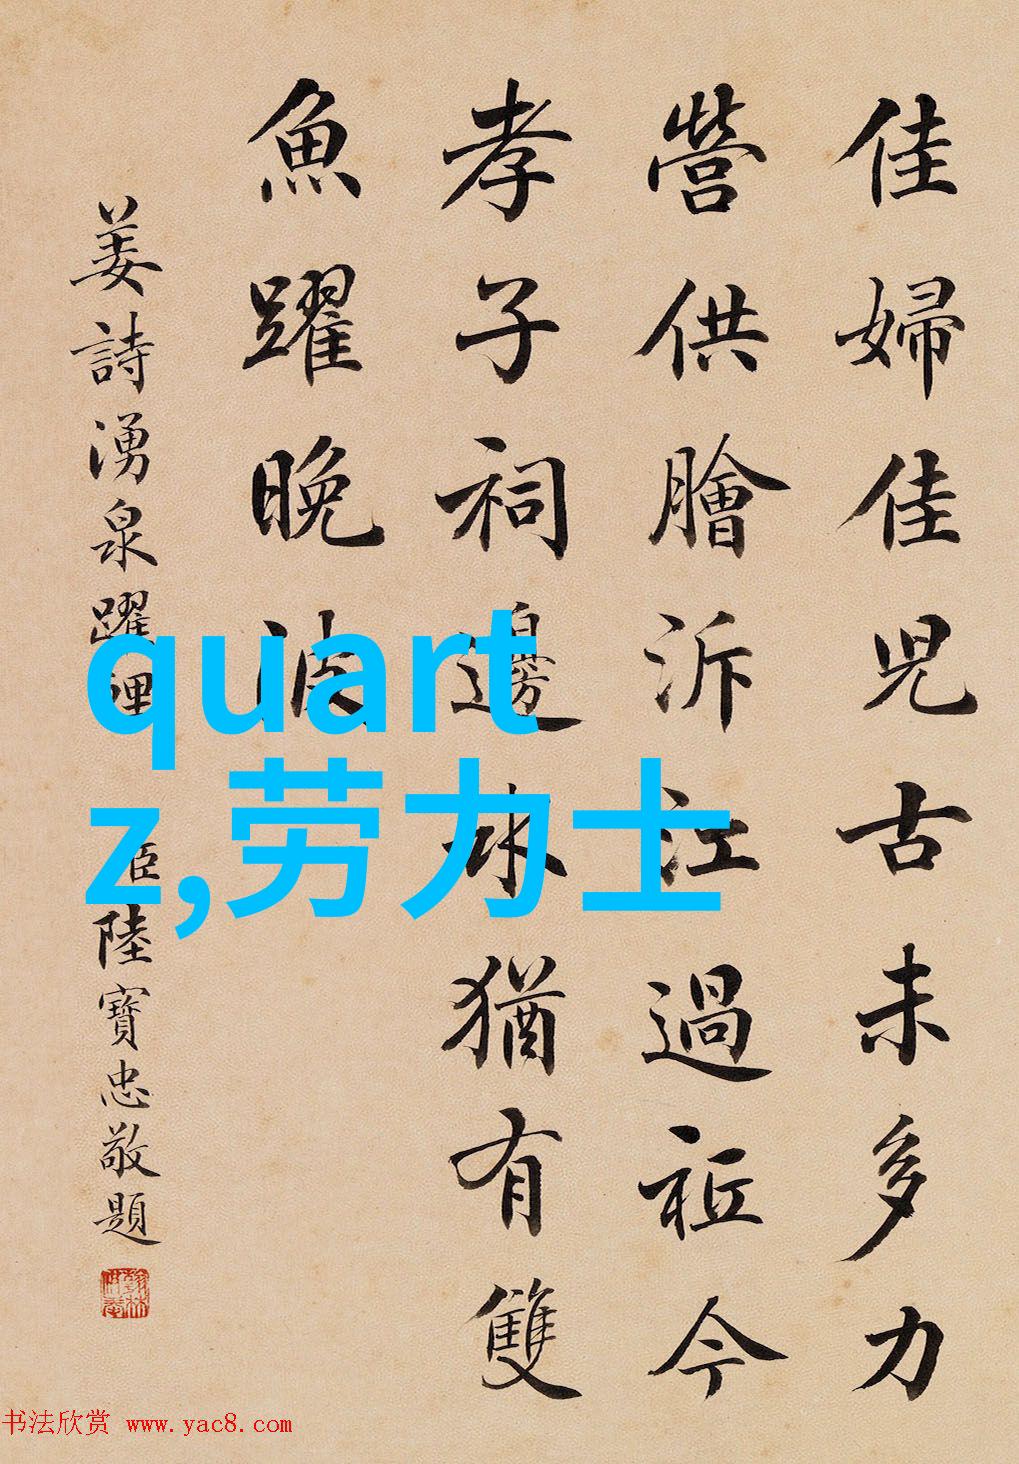 佳婦佳児古未多力
營供膾泝江過今
孝子祠邊水猶有雙
魚躍晚波
姜詩湧泉躍鯉 臣陸寶忠敬題
quart
z,劳力士
书法欣赏 www.yac8.com